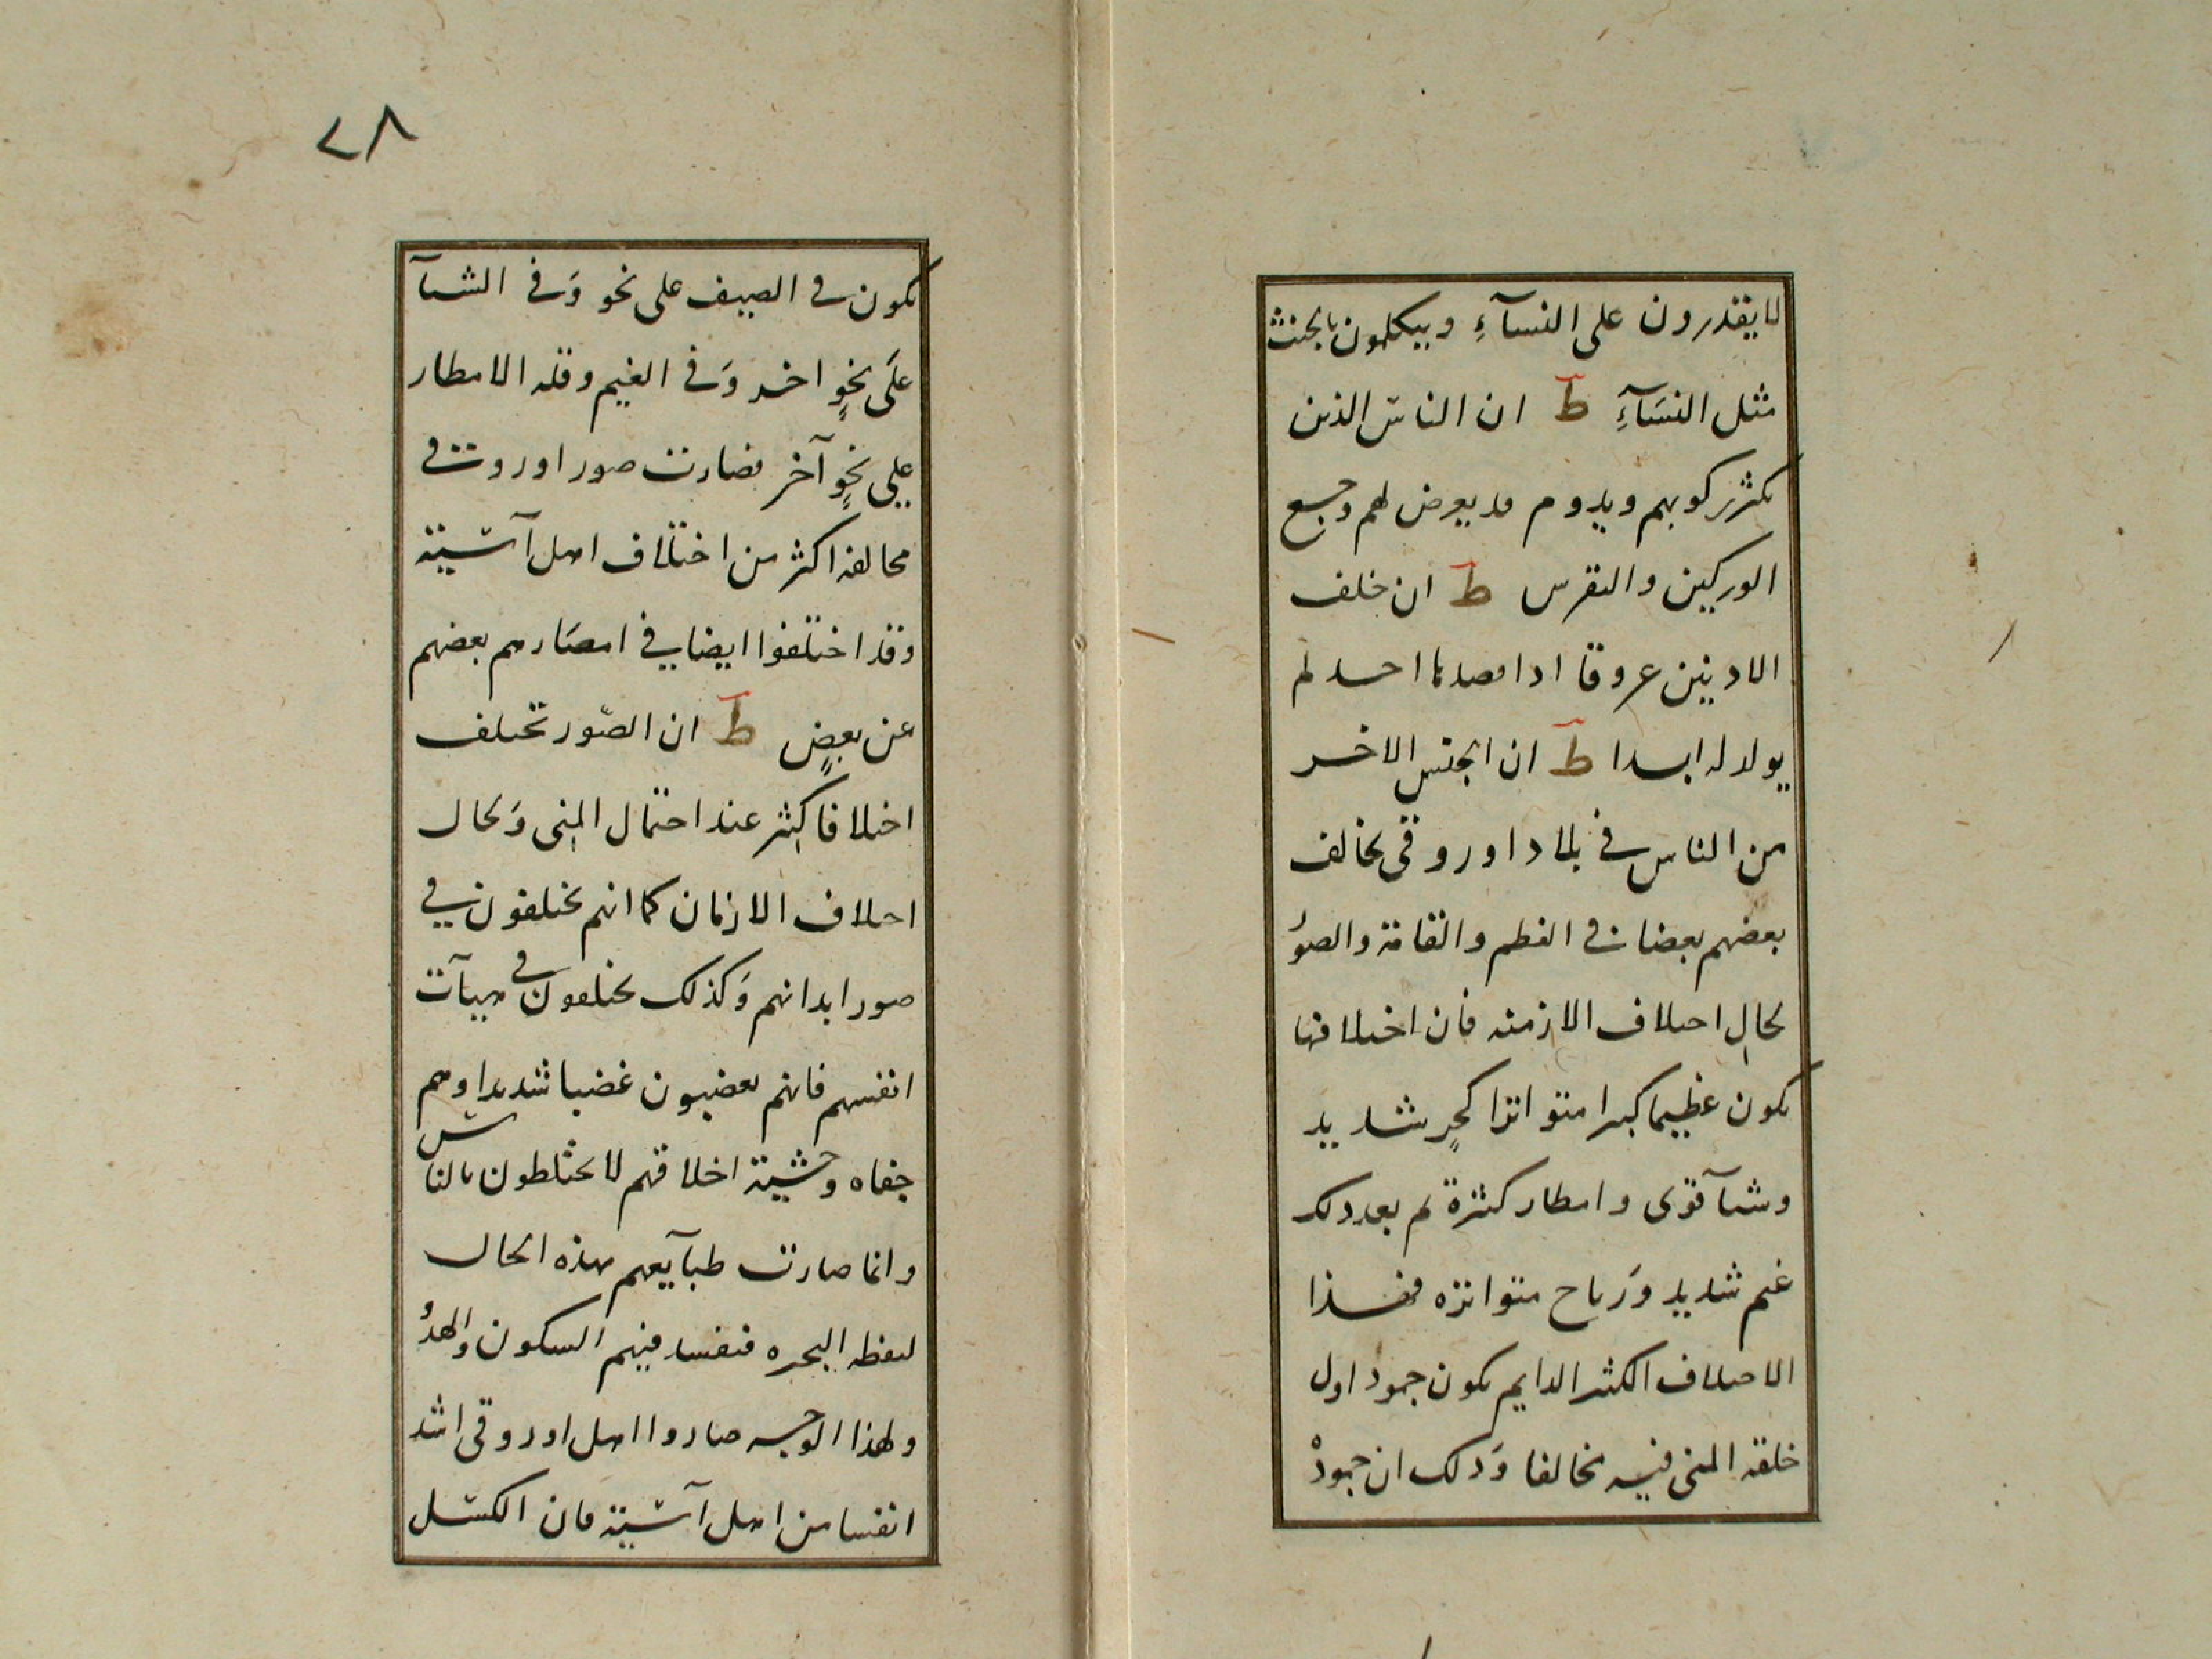 لا يقدرون على النسآءِ ويتكلمون بالخنث
مثل النسَآءِ ط ان الناس الذين
تكثر ركوبهم ويدوم قد يعرض لهم وجع
الوركين والنقرس ط ان خلف
الاذنين عروقا اذا فصدها احد لم
يولد له ابدا ط ان الجنس الاخر
من الناس في بلاد اوروفى يخالف
بعضهم بعضا في العظم والقامة والصوُ
لحال اختلاف الازمنه فان اختلافها
يكون عظيما كبيرا متواترا كحرٍ شديد
وشتآ قوى وامطار كثرة ثم بعد ذلك
غيم شديد وَرياح متواتره فهذا
الاختلاف الكثير الدايم يكون جمود اول
خلقه المنى فيه مخالفا وَذلك ان جمودْ
٢٨
يكون في الصيف على نحو وَفي الشتآ
علَى نحوٍ اخر وَفي الغيم وقله الامطار
على نحوٍ آخر فصارت صور اوروفى
مخالفه اكثر من اختلاف اهل آسية
وقد اختلفوا ايضا في امصَارهم بعضهم
عن بعضٍ ط ان الصّور تختلف
اختلافا كثير عند احتمال المنى وَلحال
اختلاف الازمان كما انهم يختلفون في
صور ابدانهم وَكذلك يختلفون في هيآت
انفسهم فانهم يغضبون غضبا شديدا وهم
جفاه وحشية اخلاقهم لا يختلطون بالناس
وانما صارت طبآيعهم بهذه الحال
فيفسد فيهم السكون والهدُ
ولهذا الوجه صاروا اهل اوروفى اشد
انفسا من اهل آسية فان الكسل